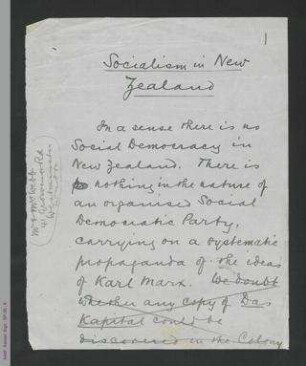 1
Socialism in New
Zealand
In a sense there is no
Social Democracy in
New Zealand. There is
nothing in the nature of
an organised Social
Democratic Party,
carrying on a systematic
propaganda of the ideas
of Karl Marx. We doubt
whether any copy of Das
Kapital could be
discovered in the Colony
Mr & Mrs Webb
41 Grosvenor Rd
Westminster
London